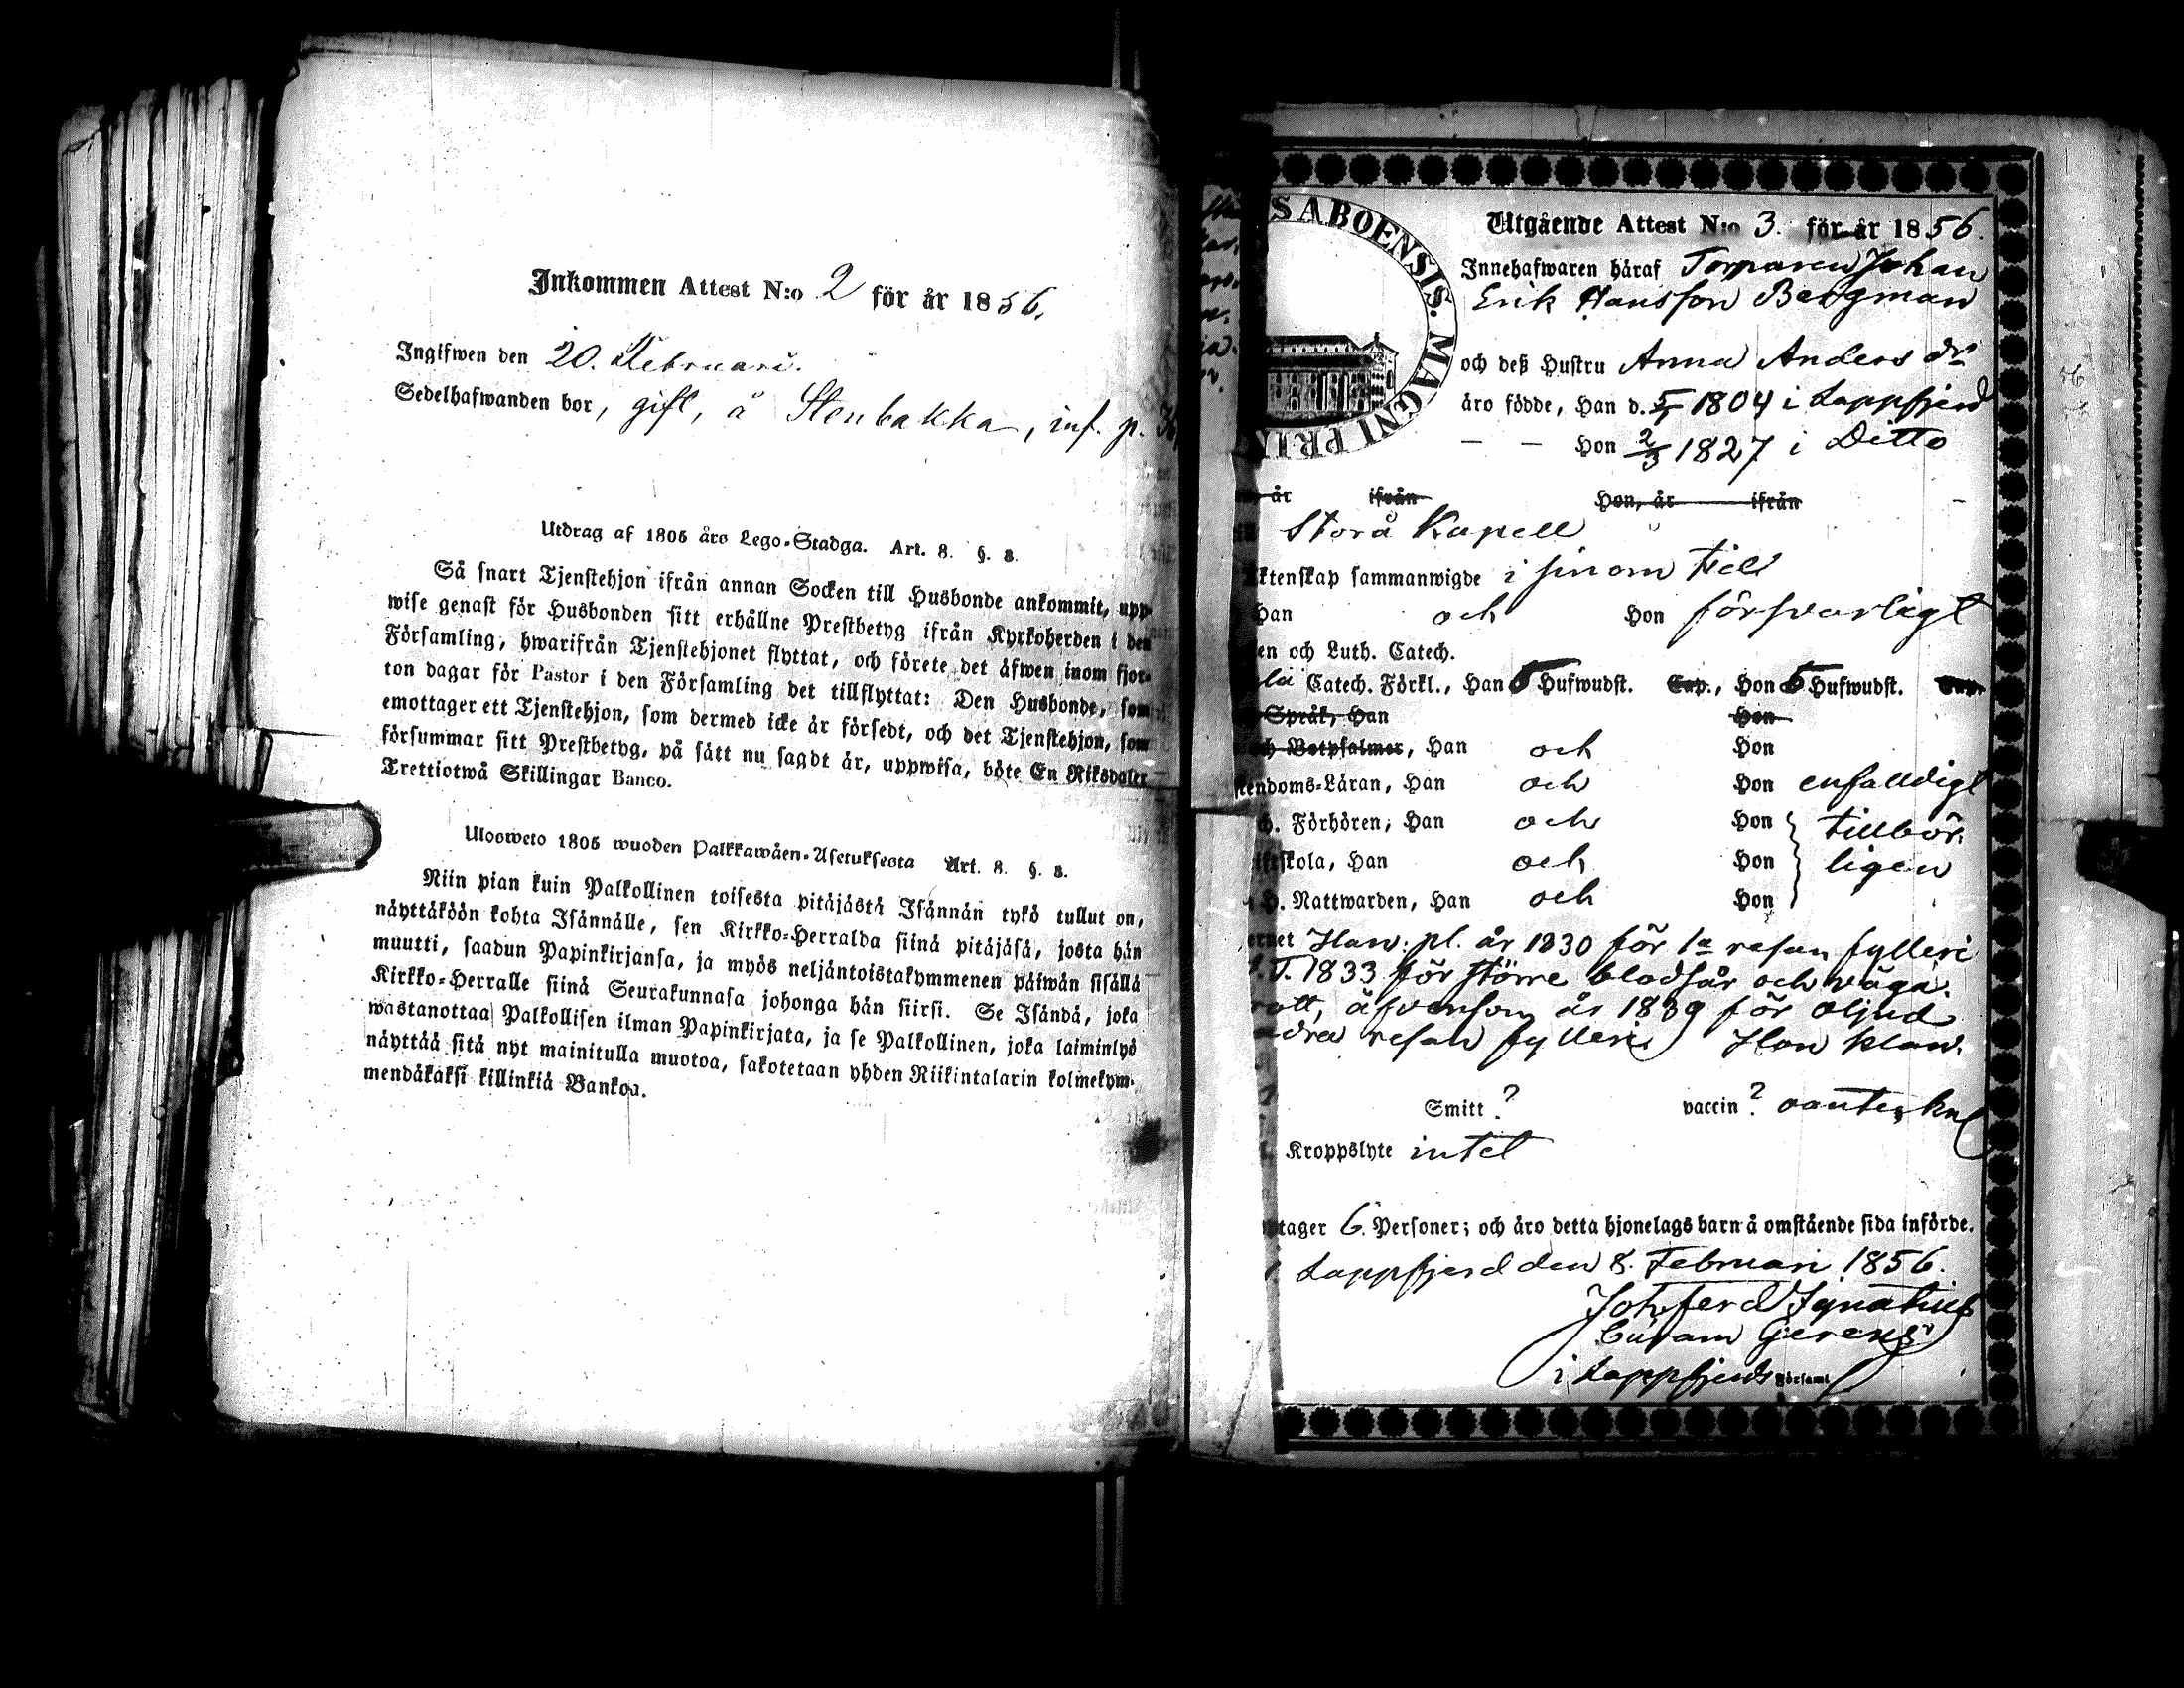 Inkommen Attest N:o 2 för år 1856.
Ingifwen den 20. Februari.
Sedelhafwanden bor, gift, å Stenbakka, inf. p.
Utdrag af 1805 års Lego-Stadga. Art. 8. §. 8.
Så snart Tjenstehjon ifrån annan Socken till Husbonde ankommit, upp-
wise genast för Husbonden sitt erhållne Prestbetyg ifrån Kyrkoherden i den
Församling, hwarifrån Tjenstehjonet flyttat, och förete det äfwen inom fjor-
ton dagar för Pastor i den Församling det tillflyttat: Den Husbonde, som
emottager ett Tjenstehjon, som dermed icke är försedt, och det Tjenstehjon, som
försummar sitt Prestbetyg, på sätt nu sagdt är, uppwisa, böte En Riksdaler
Trettiotwå Skillingar Banco.
Ulosweto 1805 wuoden Palkkawäen-Asetuksesta Art. 8. §. 8.
Niin pian kuin Palkollinen toisesta pitäjästä Isännän tykö tullut on,
näyttäköön kohta Isännälle, sen Kirkko-Herralda siinä pitäjäsä, josta hän
muutti, saadun Papinkirjansa, ja myös neljäntoistakymmenen päiwän sisällä
Kirkko-Herralle siinä Seurakunnasa johonga hän siirsi. Se Isändä, joka
wastanottaa Palkollisen ilman Papinkirjata, ja se Palkollinen, joka laiminlyö
näyttää sitä nyt mainitulla muotoa, sakotetaan yhden Riikintalarin kolmekym-
mendäkaksi killinkiä Bankoa.
S ABOENSIS. MAGNI PRIN
Utgående Attest N:o 3. för år 1856.
Innehafwaren häraf Torparen Johan
Erik Hansson Bergman
och deß Hustru Anna Anders dr
äro födde, Han d. 1804 i Lappfjerd
— — Hon 2/3 1827 i Ditto
år ifrån Hon, år ifrån
Storå Kapell
ktenskap sammanwigde i sinom tid
Han och Hon försvarligt
en och Luth. Catech.
Catech. Förkl., Han 5 Hufwudst. Cap., Hon 5 Hufwudst. Cap.
Språk, Han Hon
ch Botpsalmer, Han och Hon
stendoms-Läran, Han och Hon enfalldigt
h. Förhören, Han och Hon tillbör-
skola, Han och Hon ligen
H. Nattwarden, Han och Hon
ernet Han pl. år 1830 för 1a resan fylleri
1833 för större blodsår och våga
rott, äfvensom år 1839 för oljud
dra resan fylleri Hon klan.
Smitt ? vaccin ?
Kroppslyte intet
tager 6. Personer; och äro detta hjonelags barn å omstående sida införde.
Lappfjerd den 8. Februari 1856.
Joh. Ferd Ignatius
Curam Gerens
i Lappfjerds Församl